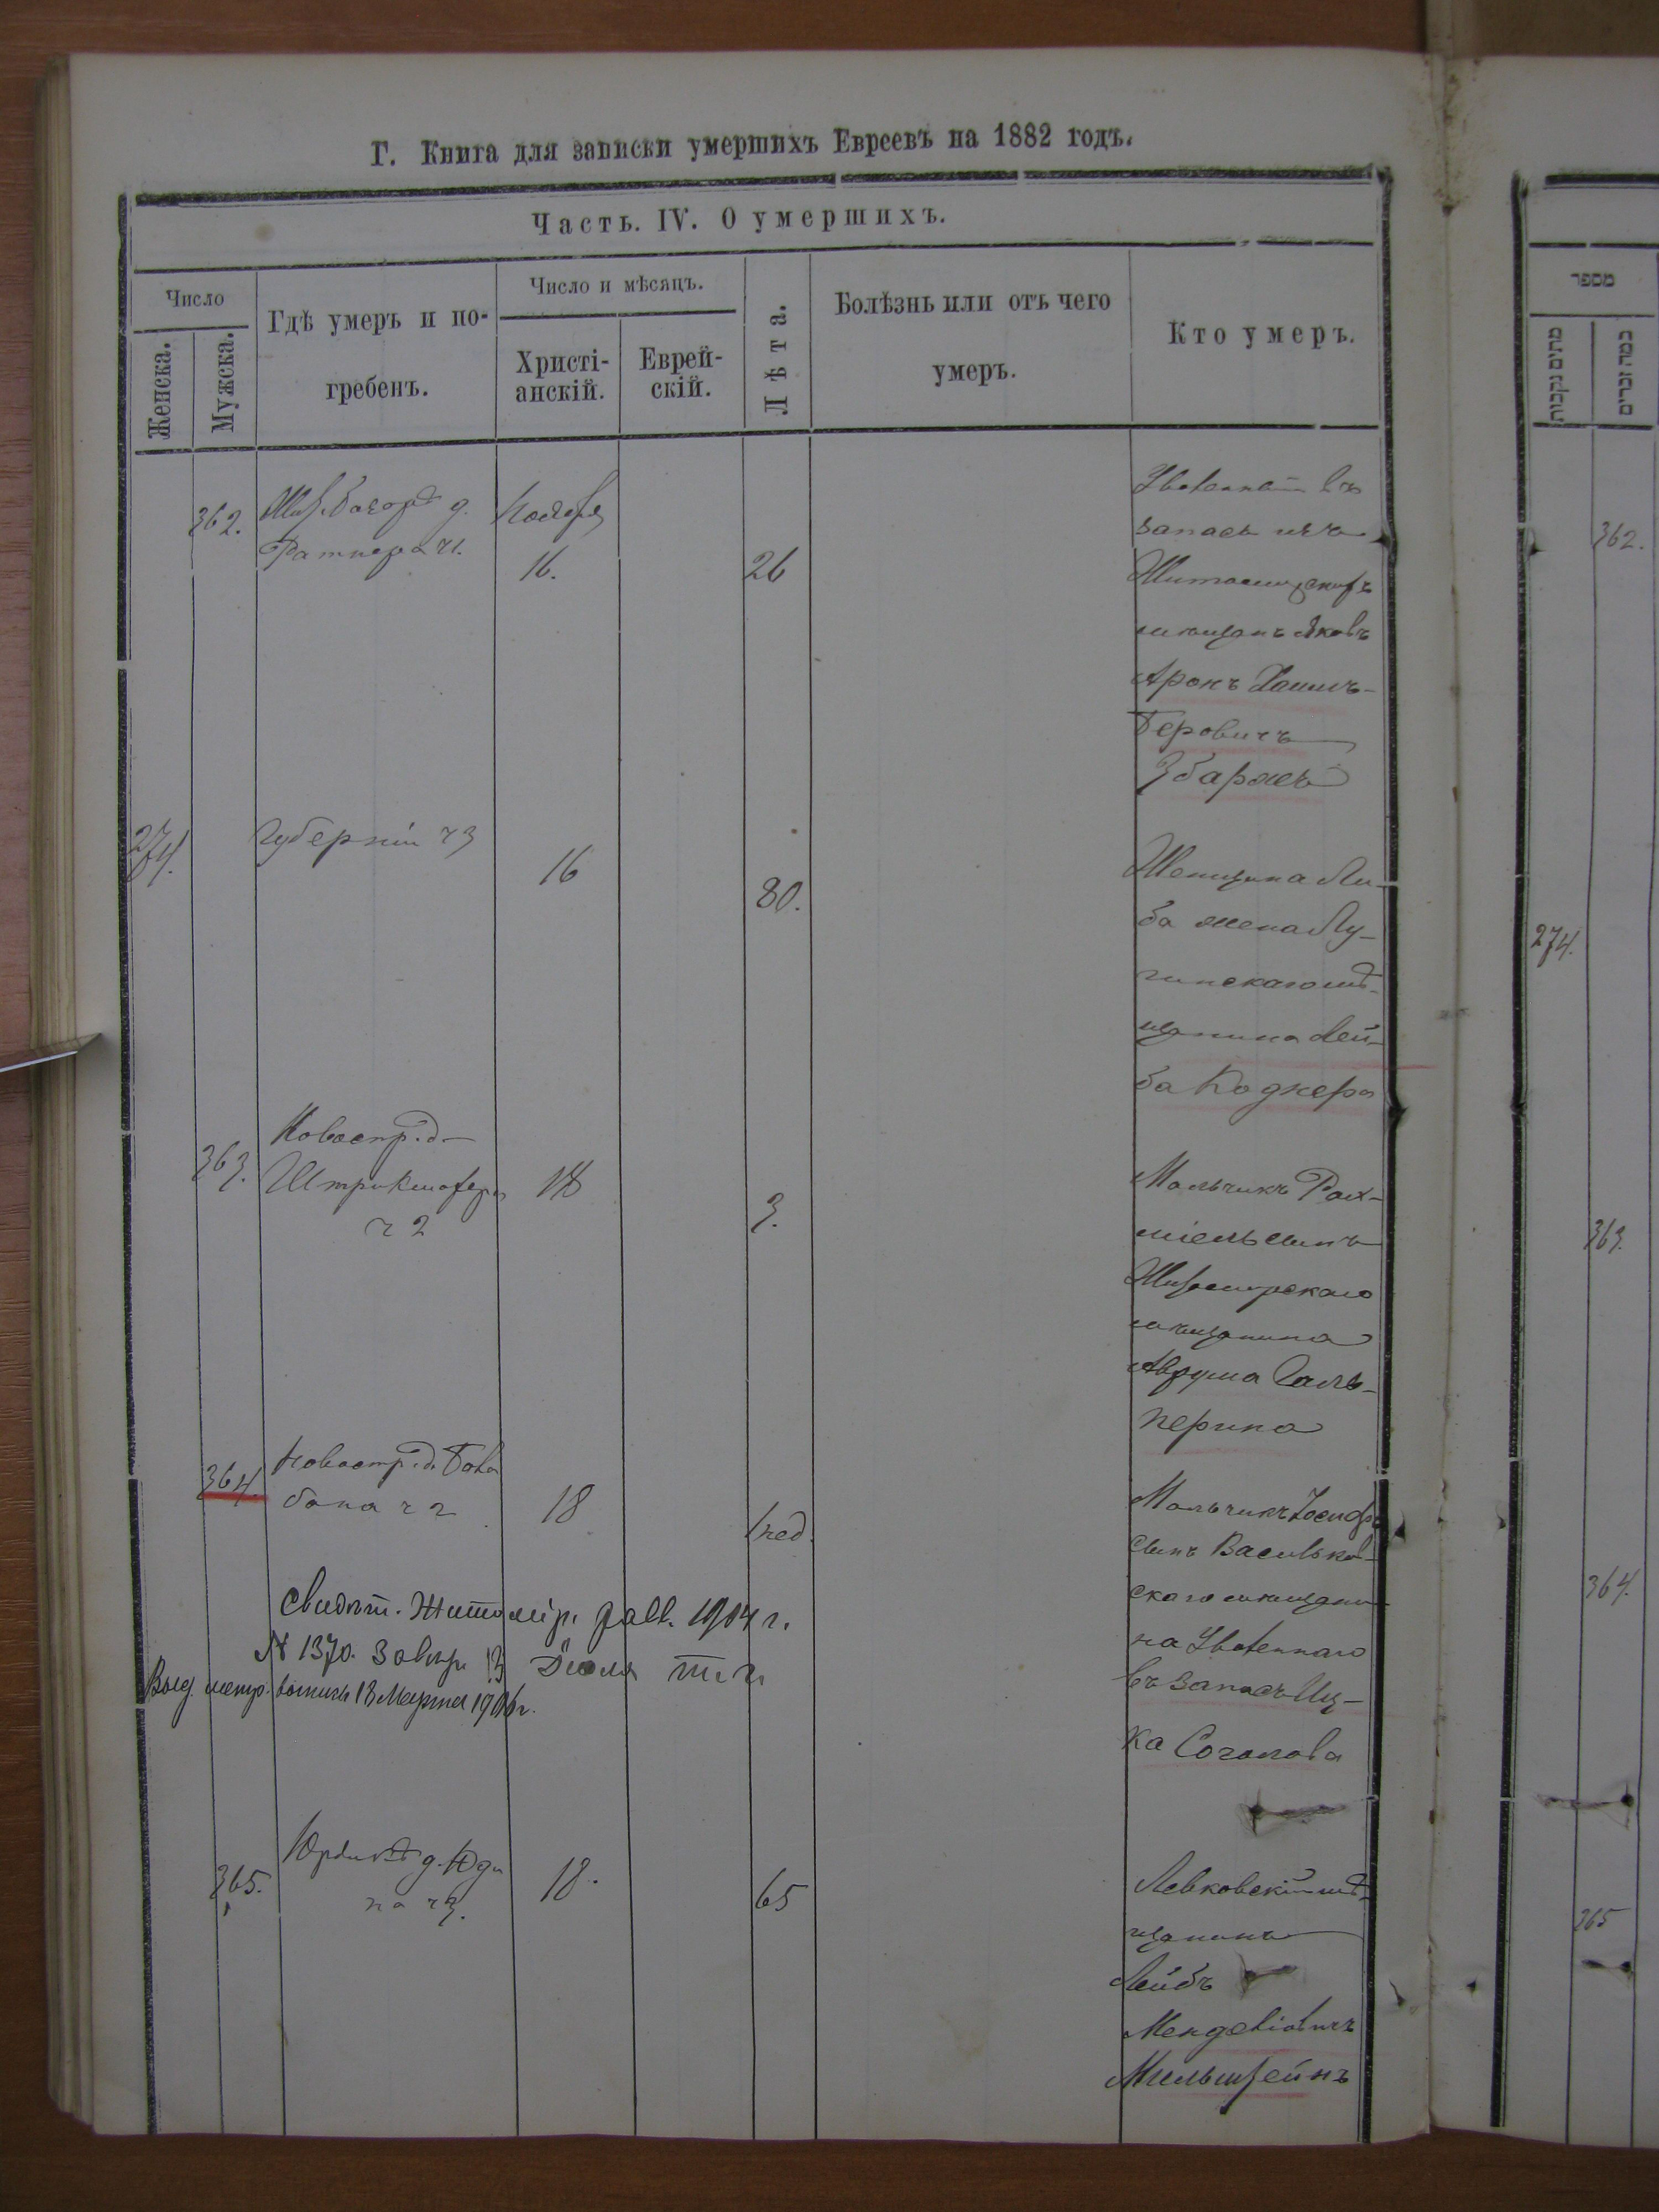 Г. Книга для записки умершихъ Евреевъ на 1882 годъ.
Часть. IV. О умершихъ.
Число
Женска.
Мужска.
Гдѣ умеръ и по-
гребенъ.
Число и мѣсяцъ.
Христі-
анскій.
Еврей-
скій.
Лѣта.
Болѣзнь или отъ чего
умеръ.
Кто умеръ.
362.
д.
Ратнера ч 1.
Ноября
16.
26
Уволенный въ
запасъ изъ
Житомирскихъ
мѣщанъ Яковъ
Аронъ Хаимъ-
Беровичъ
Збаржъ
274.
Губерніи ч 3
16
80.
Женщина Ли-
ба жена Лу-
гинскаго мѣ-
щанина Лей-
ба Коднера
363.
Новостр. д
ч 2
18
3.
Мальчикъ Рах-
міель сынъ
Житомирскаго
мѣщанина
Аврума Галь-
перина
364.
Новостр. д.
бана ч 2
18
1 нед.
Мальчикъ Іосифъ
сынъ Васильков-
скаго мѣщани-
на Уволеннаго
въ запасъ Иц-
ка Соголова
Свидѣт. Житомір. равв. 1904 г.
№ 1370. 13 Іюля т. г.
Выд. метр. выпись 13 Марта 1906 г.
365.
д. Юди
на ч 3.
18.
65
Левковскій мѣ-
щанинъ
Лейбъ
Менделіовичъ
Мильштейнъ
מספר
מתים נקבות
מתים זכרים
362.
274.
363.
364.
365